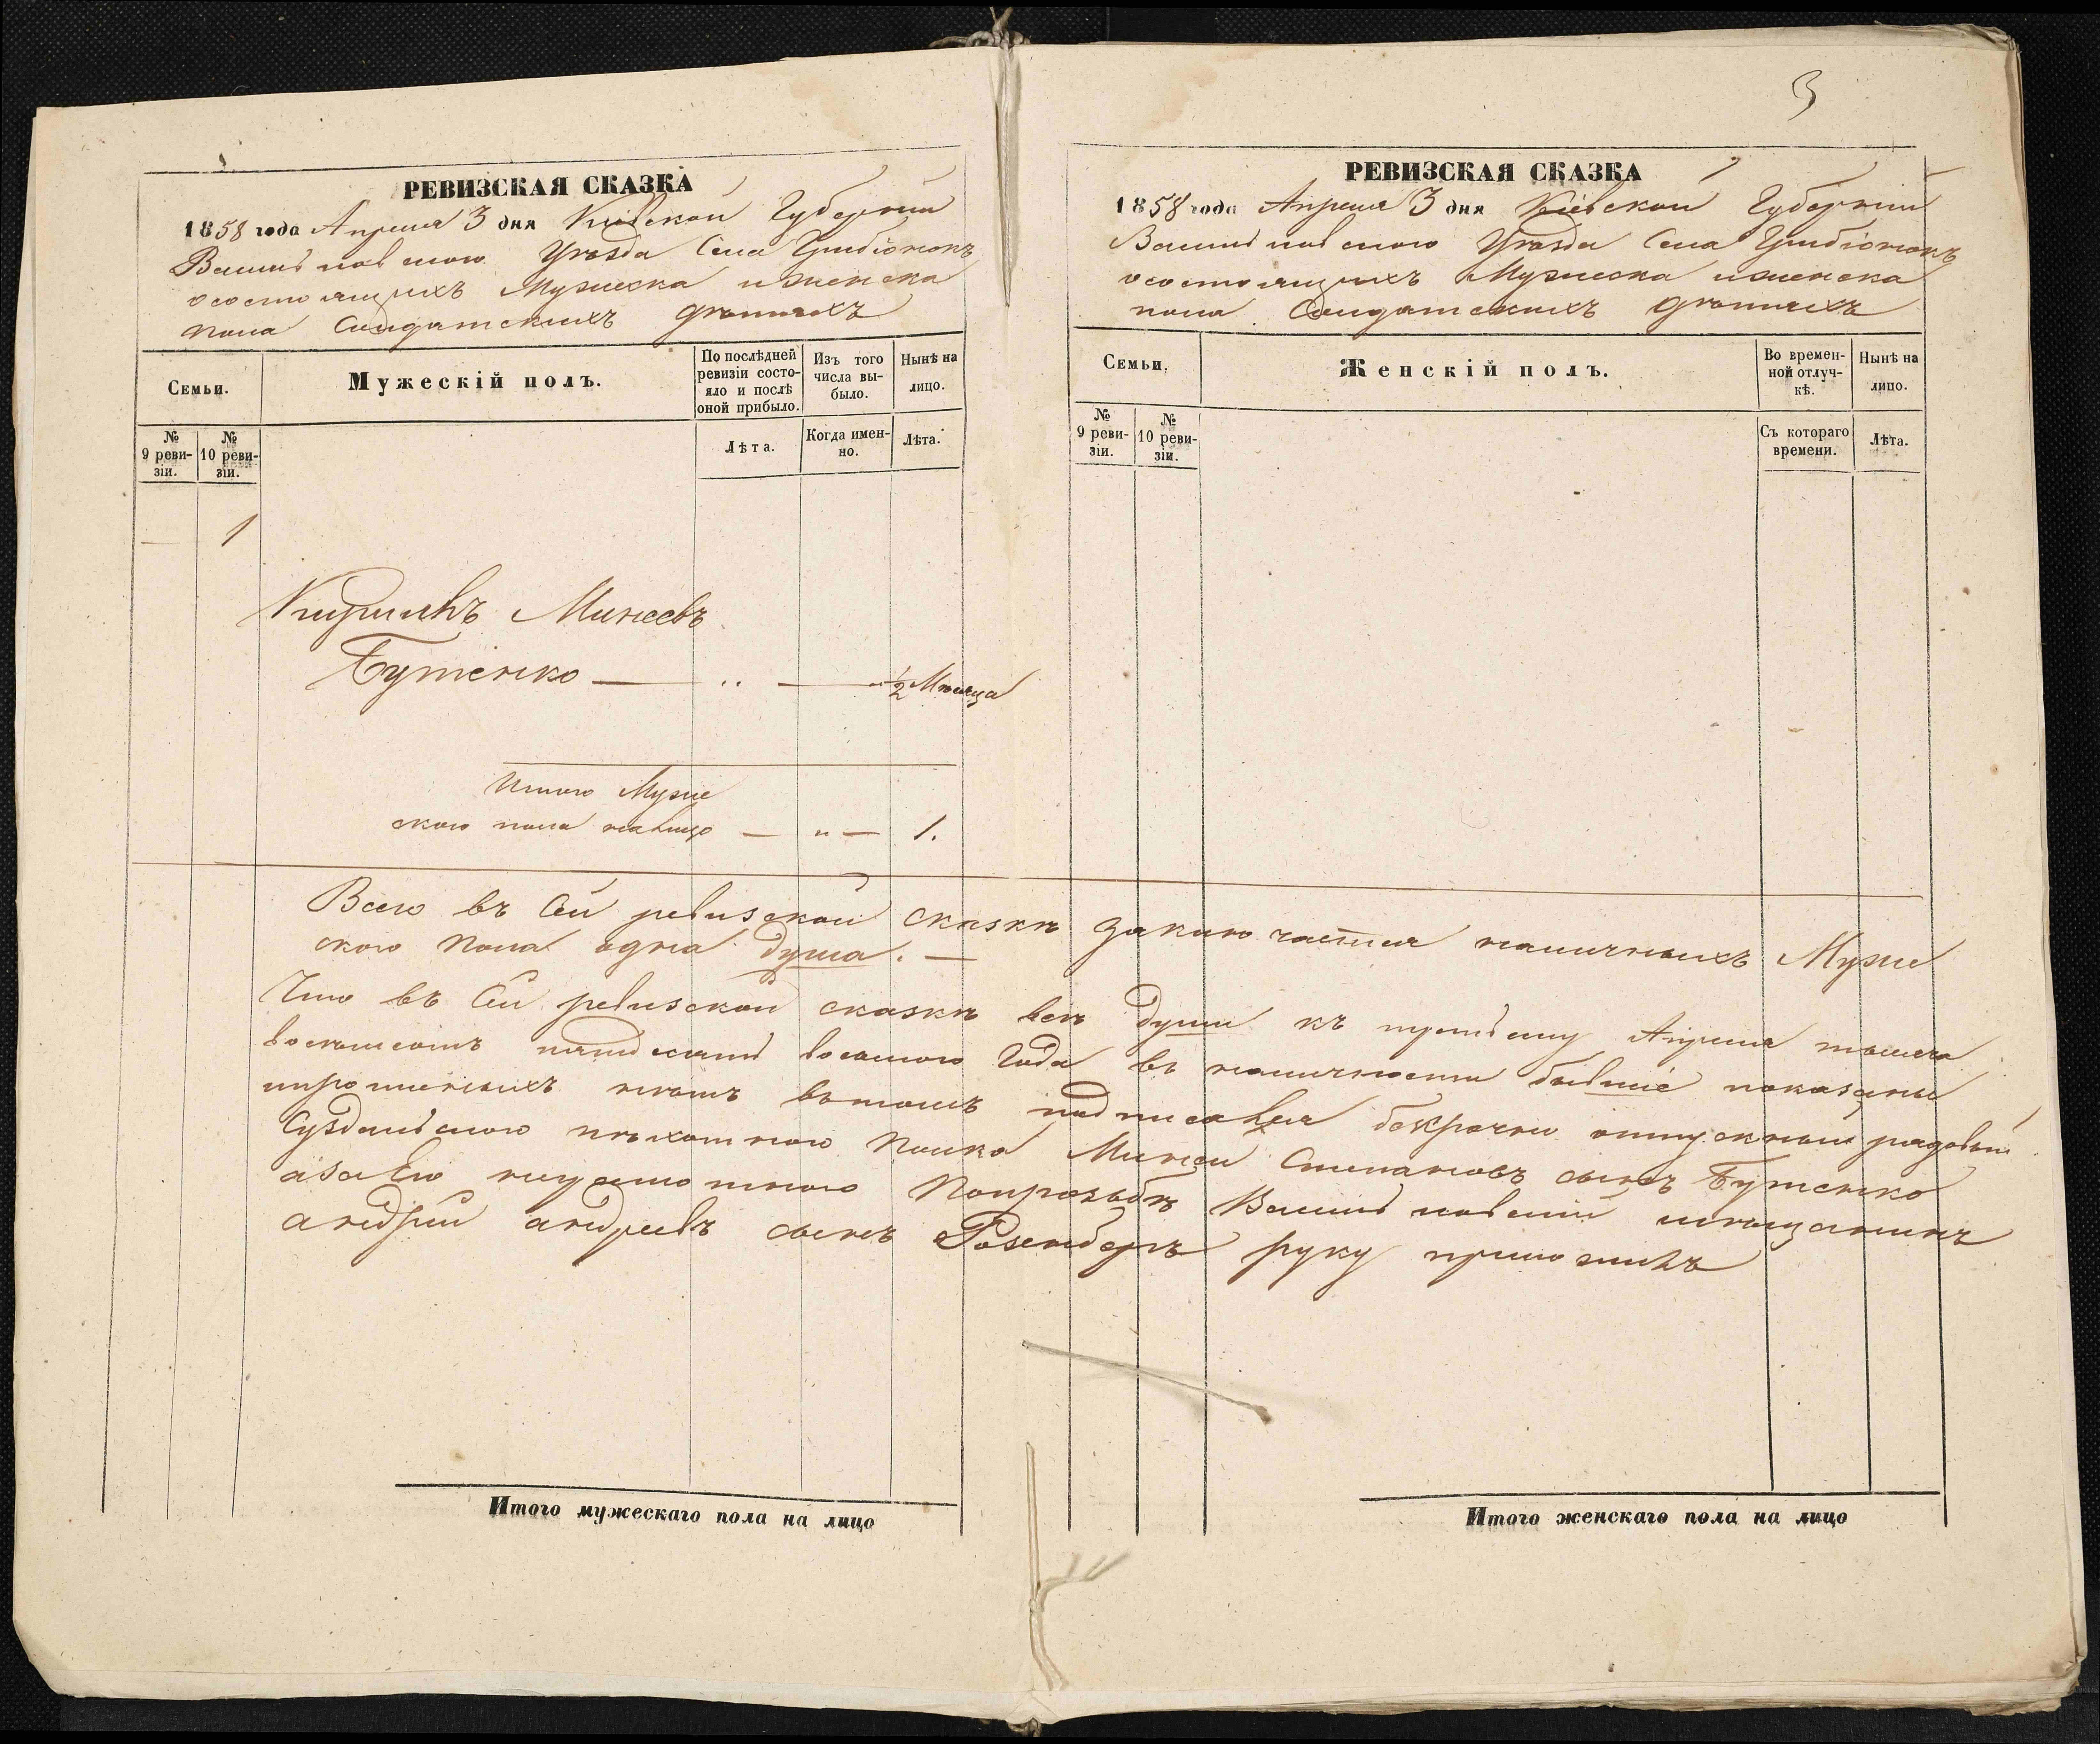 3
РЕВИЗСКАЯ СКАЗКА
1858 года Апреля 3 дня Кіевской Губерніи
Васильковского Уезда Села
осостоящихъ Мужеска иженска
пола Солдатскихъ детяхъ
Семьи.
Мужескій полъ.
По послѣдней ревизіи состояло и послѣ оной прибыло.
Изъ того числа выбыло.
Нынѣ на лицо.
№ 9 ревизіи.
№ 10 ревизіи.
Лѣта.
Когда именно.
Лѣта.
— 1
Кирилъ Минеевъ
Бутенко — " — ½ Месяца
Итого Муже
ского пола налицо — " — 1.
РЕВИЗСКАЯ СКАЗКА
1858 года Апреля 3 дня Кіевской Губерніи
Васильковского Уезда Села
осостоящихъ Мужеска иженска
пола Солдатскихъ детяхъ
Семьи.
Женскій полъ.
Во временной отлучкѣ.
Нынѣ на лицо.
№ 9 ревизіи.
№ 10 ревизіи.
Съ котораго времени.
Лѣта.
Всего въ Сей ревизской сказке заключается наличныхъ Муже
ского пола одна душа. —
Что въ Сей ревизской сказке все души къ третьему Апреля тысяча
восемьсотъ пятьдесятъ восьмого Года въ наличности бывшіе показаны
ипрописныхъ нетъ вътомъ подписался безсрочно отпускный рядовый
Суздальского пехотного Полка Миней Степановъ сынъ Бутенко
азаЕго неграмотного Попрозьбе Васильковский мещанинъ
андрей андреевъ сынъ Розенберъ руку приложилъ
Итого мужескаго пола на лицо
Итого женскаго пола на лицо